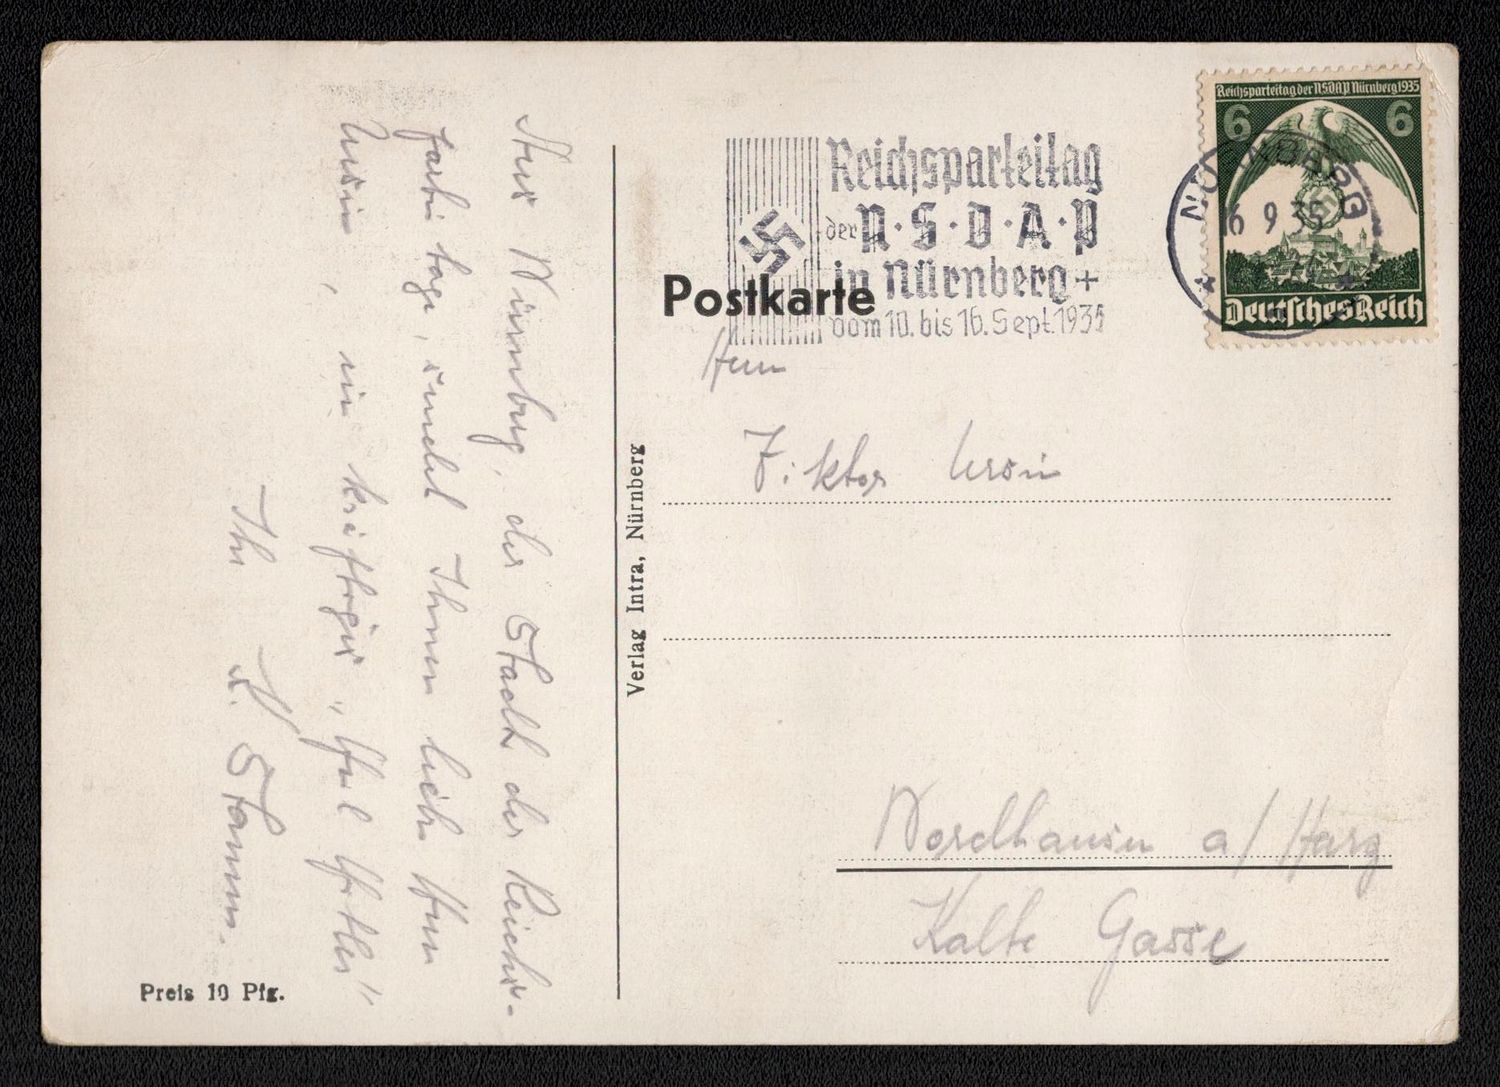 Aus Nürnberg, der Stadt der Reichs-
parteitage, sendet Ihnen lieber Herr
Ursin, ein kräftiges „Heil Hitler"
Ihr
Preis 10 Pfg.
Verlag Intra, Nürnberg
Postkarte
Reichsparteitag
der N·S·D·A·P
in Nürnberg +
vom 10. bis 16. Sept. 1935
Reichsparteitag der NSDAP Nürnberg 1935
6 6
Deutsches Reich
NÜRNBERG
6 9 35
Herrn
Viktor Ursin
Nordhausen a/ Harz
Kalte Gasse